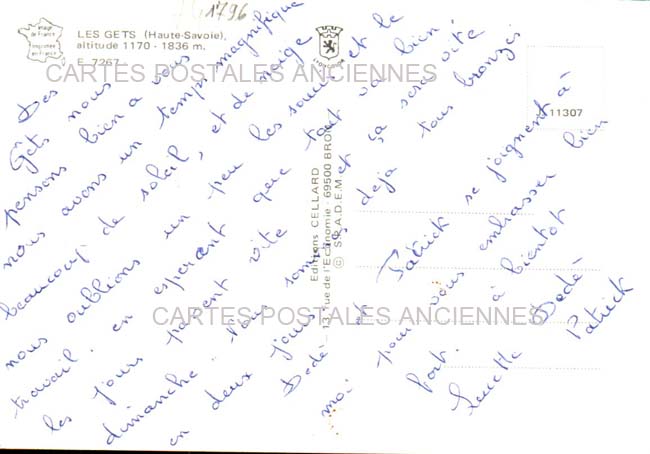 1796
Image de France
Imprimée en France
LES GETS (Haute-Savoie),
altitude 1170 - 1836 m.
E 7267
EDY-COLOR
11307
CARTES POSTALES ANCIENNES
CARTES POSTALES ANCIENNES
Editions CELLARD
13, rue de l'Economie - 69500 BRON
© S.P.A.D.E.M.
Des
Gets nous
pensons bien à vous
nous avons un temps magnifique
beaucoup de soleil, et de neige
nous oublions un peu les soucis et le
travail. en espérant que tout va bien
les jours passent vite et ça sera vite
dimanche. Nous sommes déjà tous bronzés
en deux jours.
Dédé et Patrick se joignent à
moi pour vous embrasser bien
fort. à bientot
Lucette Dédé
Patrick